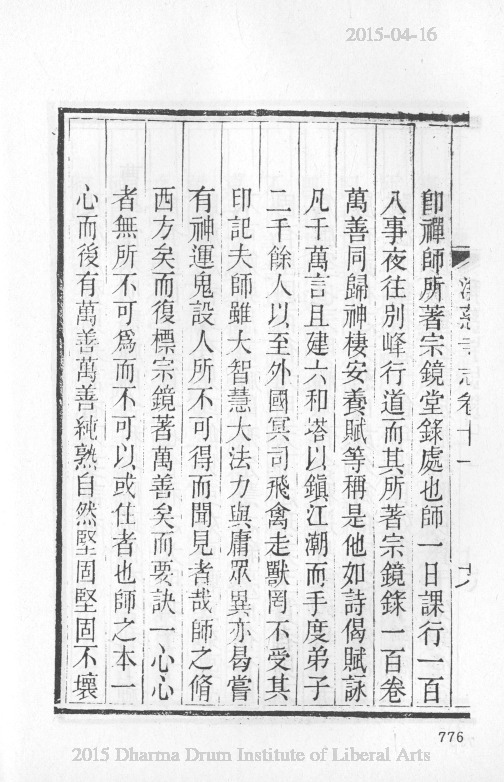 2015-04-16
淨慈寺志卷十一
十八
卽禪師所著宗鏡堂錄處也師一日課行一百
八事夜往別峰行道而其所著宗鏡錄一百卷
萬善同歸神棲安養賦等稱是他如詩偈賦詠
凡千萬言且建六和塔以鎮江潮而手度弟子
二千餘人以至外國冥司飛禽走獸罔不受其
印記夫師雖大智慧大法力與庸眾異亦曷嘗
有神運鬼設人所不可得而聞見者哉師之脩
西方矣而復標宗鏡著萬善矣而要訣一心心
者無所不可爲而不可以或住者也師之本一
心而後有萬善萬善純熟自然堅固堅固不壞
776
2015 Dharma Drum Institute of Liberal Arts